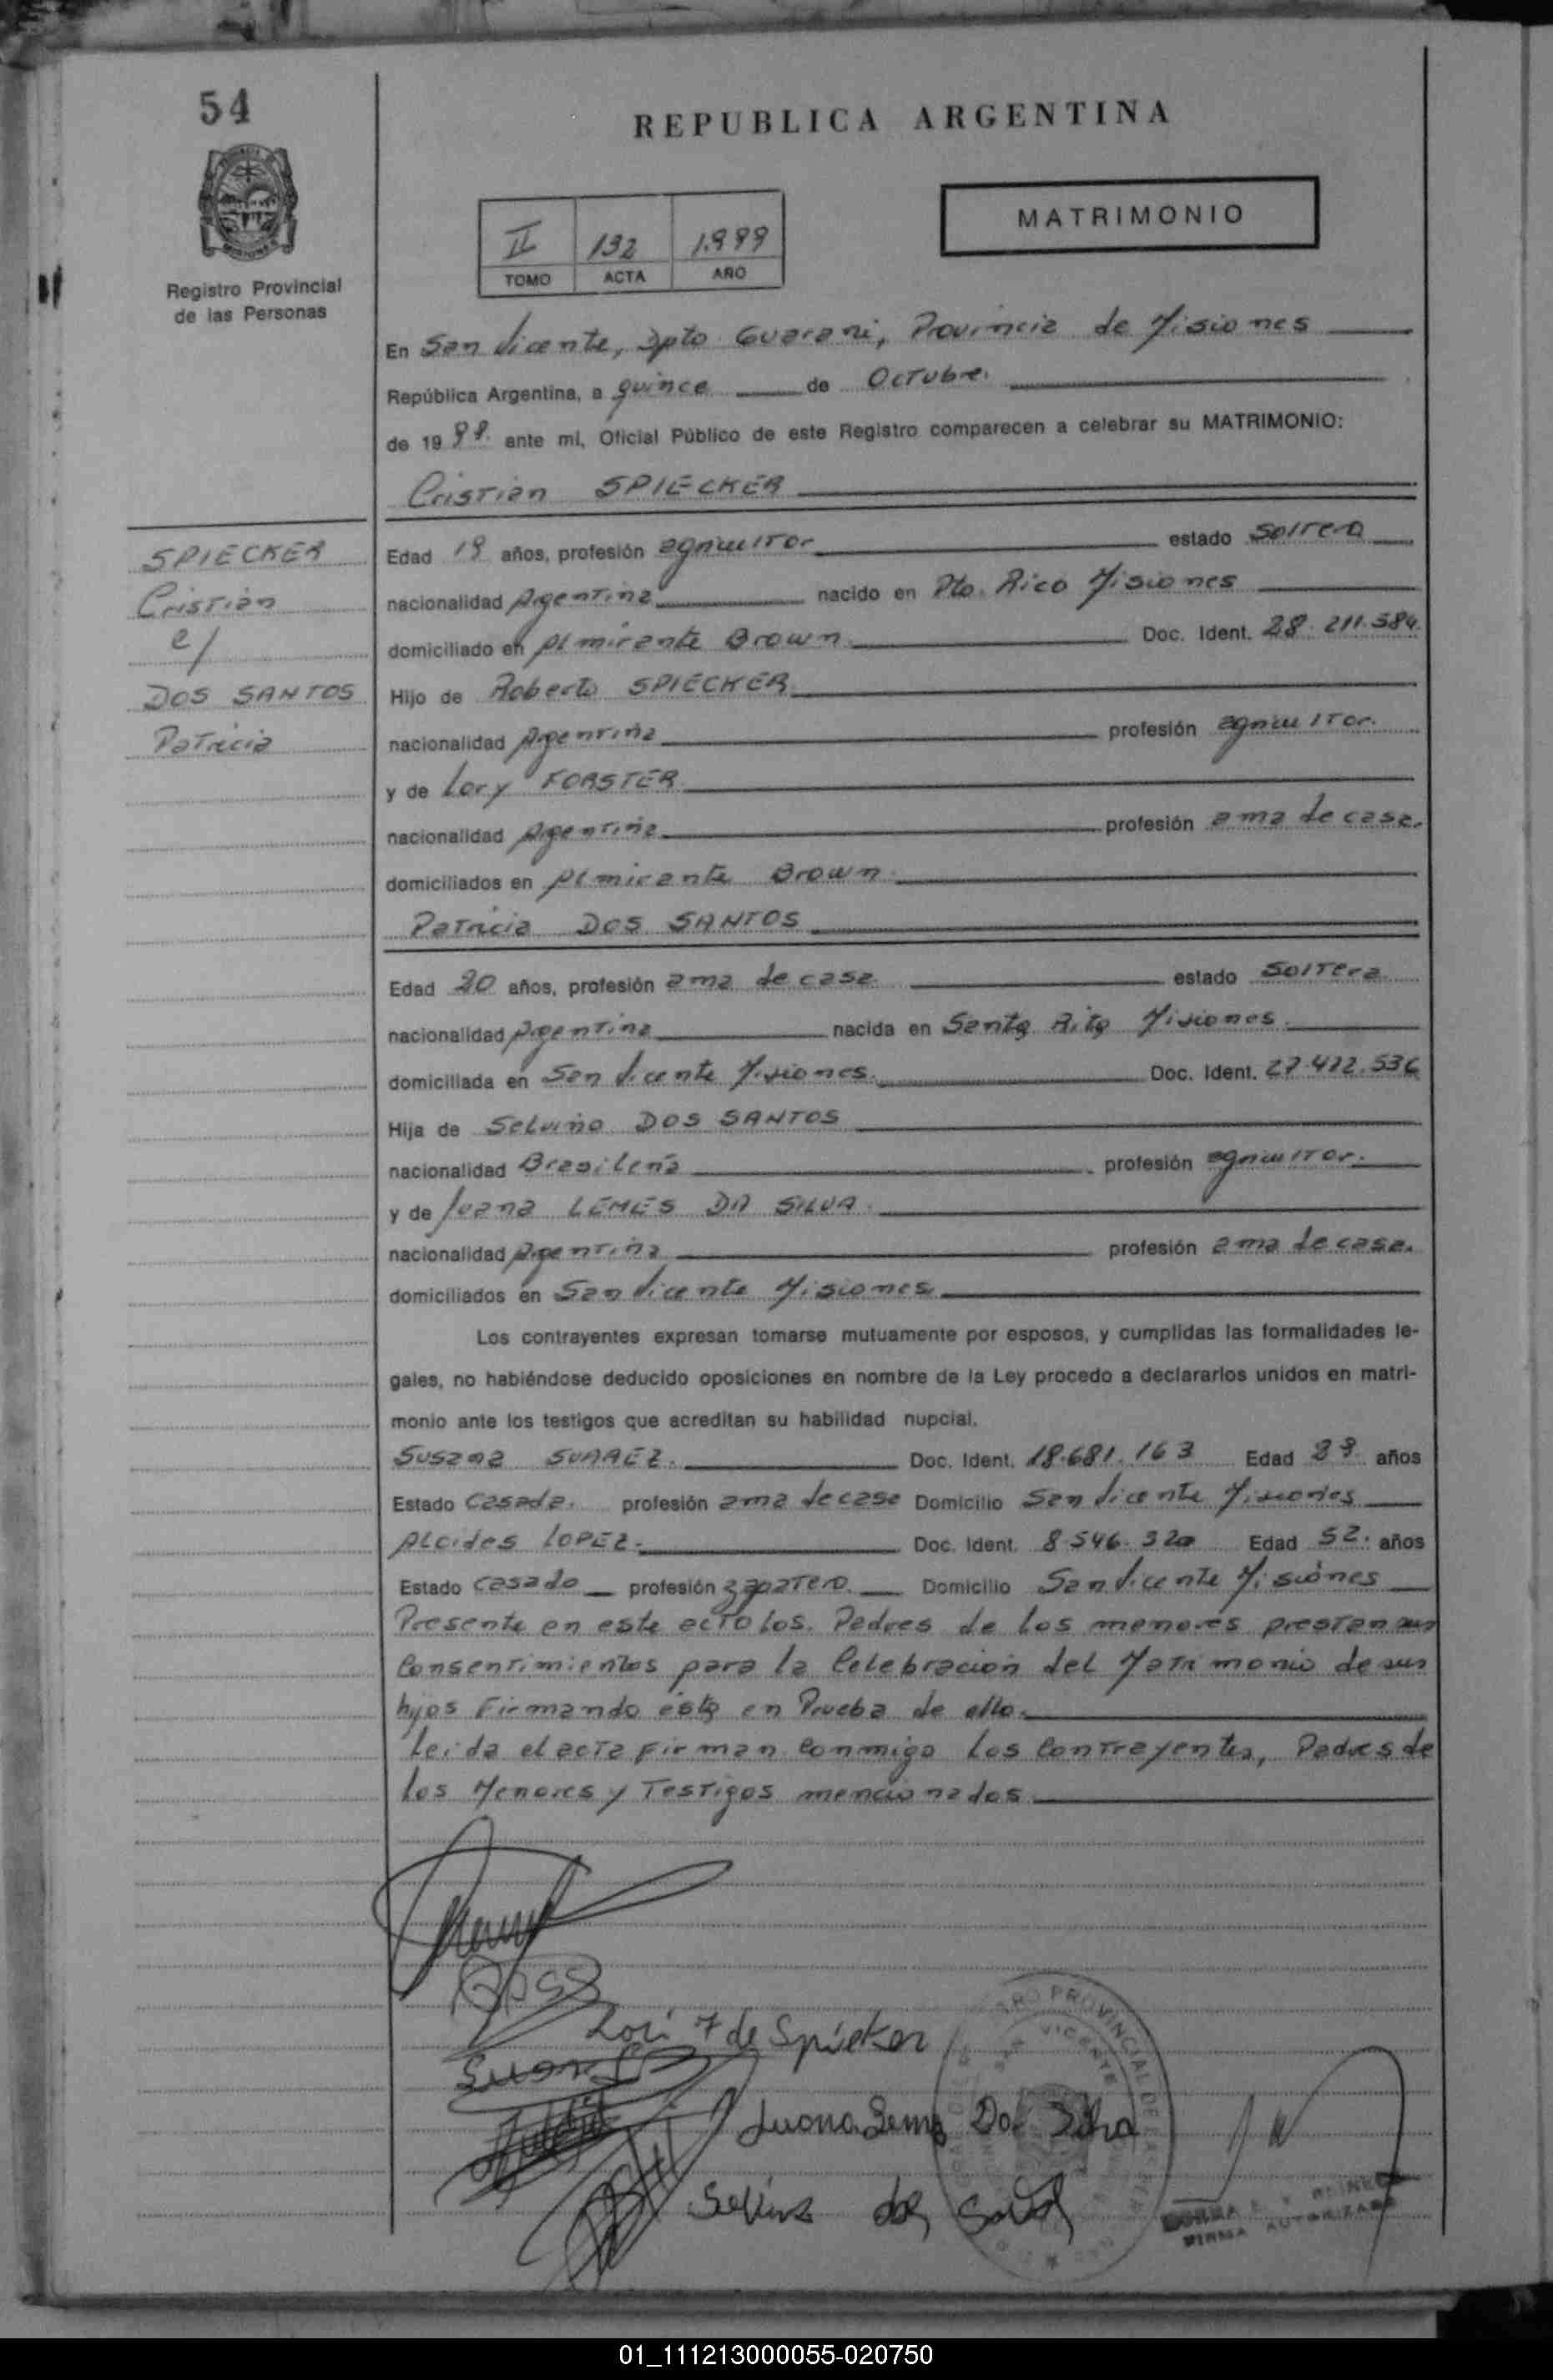 54
REPUBLICA ARGENTINA
MATRIMONIO
II 132 1.999
TOMO ACTA AÑO
Registro Provincial
de las Personas
En San Vicente, Dpto Guarani, Provincia de Misiones
República Argentina, a quince de Octubre.
de 19 99. ante mi, Oficial Público de este Registro comparecen a celebrar su MATRIMONIO:
Cristian SPIECKER
SPIECKER
Cristian
c/
DOS SANTOS
Patricia
Edad 19 años, profesión agricultor estado Soltero
nacionalidad Argentina nacido en Pto. Rico Misiones
domiciliado en Almirante Brown Doc. Ident. 28.211.584.
Hijo de Roberto SPIECKER
nacionalidad Argentina profesión agricultor.
y de Lory FORSTER
nacionalidad Argentina profesión ama de casa.
domiciliados en Almirante Brown
Patricia DOS SANTOS
Edad 20 años, profesión ama de casa estado Soltera
nacionalidad Argentina nacida en Santa Rita Misiones.
domiciliada en San Vicente Misiones. Doc. Ident. 27.412.536
Hija de Selvino DOS SANTOS
nacionalidad Brasileña profesión agricultor.
y de Juana LEMES DA SILVA.
nacionalidad Argentina profesión ama de casa.
domiciliados en San Vicente Misiones.
Los contrayentes expresan tomarse mutuamente por esposos, y cumplidas las formalidades le-
gales, no habiéndose deducido oposiciones en nombre de la Ley procedo a declararlos unidos en matri-
monio ante los testigos que acreditan su habilidad nupcial.
Susana SUAREZ. Doc. Ident. 18.681.163 Edad años
Estado Casada. profesión ama de casa Domicilio San Vicente Misiones
Alcides LOPEZ. Doc. Ident. 8.546.320 Edad 52. años
Estado Casado profesión zapatero. Domicilio San Vicente Misiones
Presente en este acto los Padres de los menores prestan sus
Consentimientos para la Celebración del Matrimonio de sus
hijos Firmando esta en Prueba de ello.
Leida el acta Firman Conmigo Los Contrayentes, Padres de
los Menores y Testigos mencionados
Lori F de Spieker
Juana Lemes Da Silva
dos
FIRMA AUTORIZADA
01_111213000055-020750